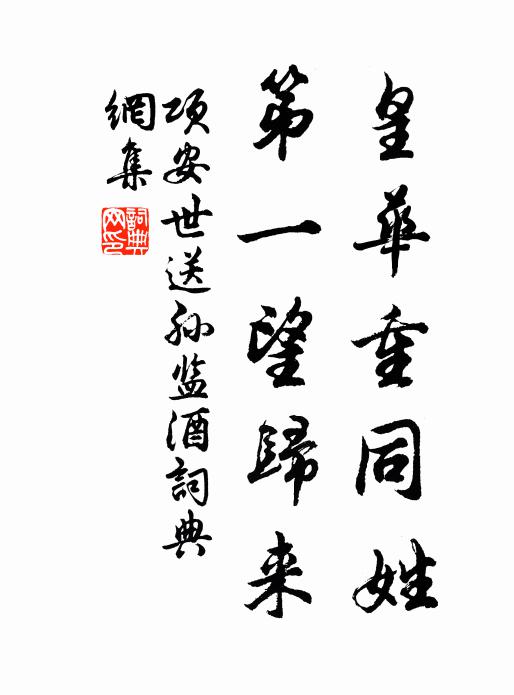 皇華重同姓
第一望歸来
項安世送孫監酒詞典
網集
詞典網印